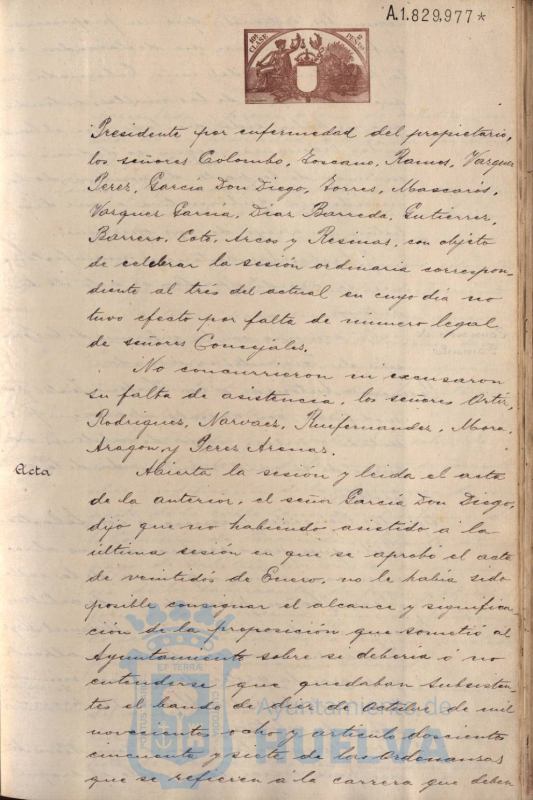 A.1.829.977*
CLASE
Presidente por enfermedad del propietario,
los señores Colombo, Toscano, Ramos, Vazquez
Perez, Garcia Don Diego, Torres, Mascarós,
Vazquez García, Diaz Barreda, Gutierrez,
Barrero, Coto, Arcos y Resinas, con objeto
de celebrar la sesión ordinaria correspon-
diente al tres del actual en cuyo dia no
tuvo efecto por falta de número legal
de señores Concejales.
No concurrieron ni excusaron
su falta de asistencia, los señores Ortiz,
Rodriguez, Narvaez, Ruifernandez, Mora,
Aragon, y Perez Arenas.
Acta
Abierta la sesión y leida el acta
de la anterior, el señor García Don Diego,
dijo que no habiendo asistido á la
última sesión en que se aprobó el acta
de veintidós de Enero, no le había sido
posible consignar el alcance y significa-
ción de la proposición que sometió al
Ayuntamiento sobre si debería ó no
entenderse que quedaban subsisten-
tes el bando de diez de octubre de mil
novecientos ocho y artículo doscientos
cincuenta y siete de las Ordenanzas
que se refieren á la carrera que deben
Ayuntamiento de
HUELVA